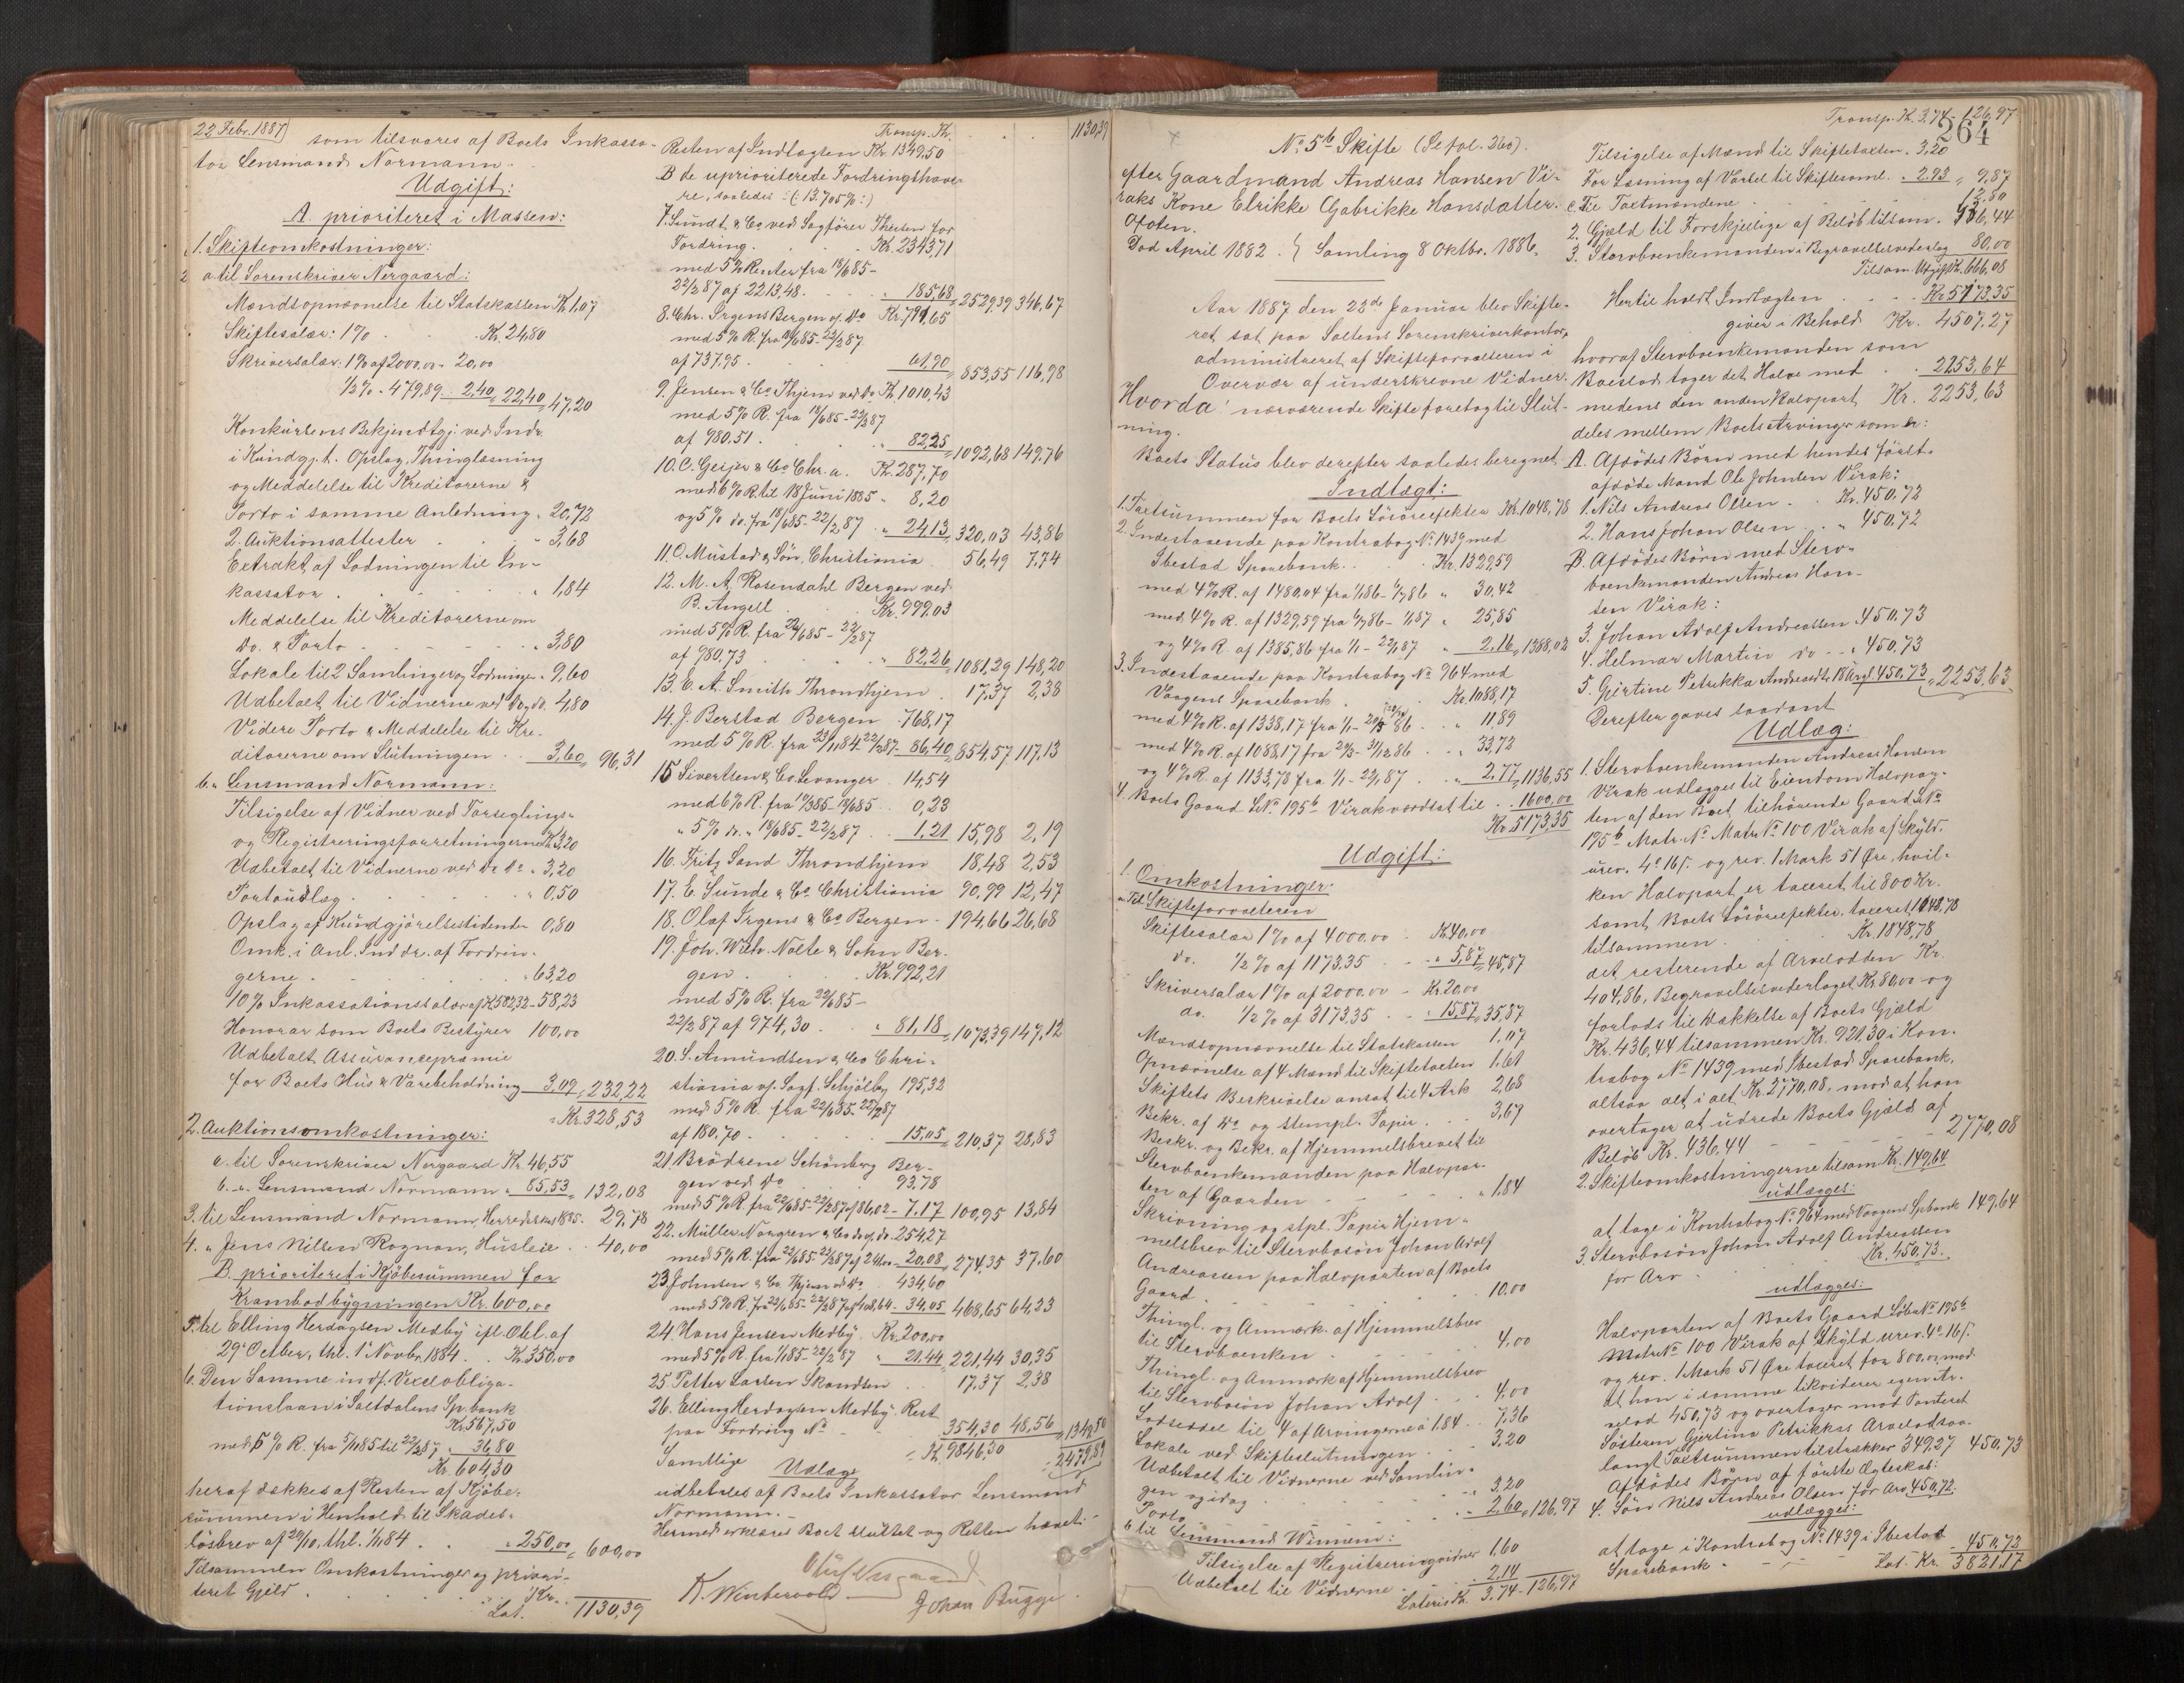 22 Febr. 1887
som tilsvares af Boets Inkassa-
tor Lensmand Normann.
Udgift:
A. prioriteret i Massen:
1. Skifteomkostninger:
a til Sorenskriver Nergaard:
Mandsopnævnelse til Statskassen Kr. 1.07
Skiftesalær: 1% . Kr. 24,80
Skriversalær: 1% af 2000,00 - 20,00
1/2% - 479,89 . 2,40 = 22,40 = 47,20
Konkursens Bekjendtgj. ved Indr.
i Kundgj.t. Opslag, Thinglæsning
og Meddelelse til Kreditorerne &
Porto i samme Anledning . 20,72
2. Auktionsattester . . 3,68
Extrakt af Lodningen til In-
kassator . . . 1,84
Meddelelse til Kreditorerne om
do. & Porto . . . 3,80
Lokale til 2 Samlinger og Lodninger . 9,60
Udbetalt til Vidnerne ved Do. do. 4,80
Videre Porto & Meddelelse til Kre-
ditorerne om Slutningen . . 3,60 = 96,31
b. " Lensmand Normann:
Tilsigelse af Vidner ved Forseglings-
og Registreringsforretningerne Kr. 3,20
Udbetalt til Vidnerne ved Do Do . 3,20
Portoudlæg . . . " 0,50
Opslag af Kundgjørelsestidende 0,80
Omk. i Anl. Inddr. af Fordrin-
gerne . . . 63,20
10% Inkassationssalær af Kr. 582,32 - 58,23
Honorar som Boets Bestyrer 100,00
Udbetalt Assurancepræmie
for Boets Hus & Varebeholdning 3,09 = 232,22
= Kr. 328,53
2. Auktionsomkostninger:
a. til Sorenskriver Nergaard Kr. 46,55
b. " Lensmand Normann " 85,53 = 132,08
3. til Lensmand Normann, Herredsskat 1885. 29,78
4. " Jens Nilsen Rognan, Husleie . 40,00
B. prioriteret i Kjøbesummen for
Krambodbygningen Kr. 600,00
5. til Elling Herdagsen Medby ifl. Obl. af
29 October, thl. 1 Novbr. 1884 . . Kr. 350,00
6. Den Samme indf. Vexelobliga-
tionslaan i Saltdalens Sp.bank
Kr. 567,50
med 5% R. fra 5/11 85 til 22/2 87 " 36,80
Kr. 604,30
heraf dækkes af Resten af Kjøbe-
summen i Henhold til Skades-
løsbrev af 29/10, thl. 1/11 84 . . " 250,00 = 600,00
Tilsammen Omkostninger og priori-
teret Gjeld . . . Kr.
Lat. 1130,39
Transp. Kr. . . . 1130,39
Resten af Indtægten Kr. 1349,50
B de uprioriterede Fordringshave-
re, saaledes - (: 13,705% :)
7. Sundt & Co ved Sagfører Thesen for
Fordring . . . Kr. 2343,71
med 5% Renter fra 18/6 85 -
22/2 87 af 2213,48 . . . 185,68 = 2529,39 346,67
8. Chr. Irgens Bergen v. Do Kr. 791,65
med 5% R. fra 18/6 85 - 22/2 87
af 737,95 . . . 61,90 = 853,55 116,98
9. Jensen & Co. Thjem ved Do Kr. 1010,43
med 5% R. fra 18/6 85 - 22/2 87
af 980.51 . . . 82,25 = 1092,68 149,76
10. C. Geijer & Co Chr.a. Kr. 287,70
med 6% R. til 18 Juni 1885 - 8,20
og 5% do. fra 18/6 85 - 22/2 87 . " 24,13 = 320,03 43,86
11. O. Mustad & Søn, Christiania 56,49 7,74
12. M. A. Rosendahl Bergen ved
B. Angell . . Kr. 999,03
med 5% R. fra 22/6 85 - 22/2 87
af 980.73 . . . " 82,26 = 1081,29 148,20
13. E. A. Smith Throndhjem . 17,37 2,38
14. J. Berstad Bergen - 768,17
med 5% R. fra 23/11 84 - 22/2 87 - 86,40 = 854,57 117,13
15 Sivertsen & Co. Levanger . 14,54
med 6% R. fra 19/3 85 - 18/6 85 . . 0,23
" 5% do. " 18/6 85 - 22/2 87 . . 1,21 15,98 2,19
16. Fritz Lund Throndhjem 18.48 2,53
17. E. Sunde & Co. Christiania 90,99 12,47
18. Olaf Irgens & Co Bergen - 194,66 26,68
19. Joh. Wilh. Nolte & Sohn Ber-
gen . . . Kr. 992,21
med 5% R. fra 22/6 85 -
22/2 87 af 974,30 . . " 81,18 = 1073,39 147,12
20. S. Amundsen & Co Chri-
stiania v. Sagf. Schjølby 195,32
med 5% R. fra 22/6 85 - 22/2 87
af 180,70 . . . 15,05 = 210,37 28,83
21. Brødrene Schönberg Ber-
gen ved Do . . 93.78
med 5% R. fra 22/6 85 - 22/2 87 af 86,02 - 7.17 100,95 13,84
22. Müller Norgren & Co do v. do - 254,27
med 5% R. fra 22/6 85 - 22/2 87 af 241,00 - 20.08 = 274,35 37,60
23. Johnsen & Co. Thjem ved Do . 434,60
med 5% R. fra 22/6 85 - 22/2 87 af 408,64 - 34,05 468,65 64,23
24. Hans Jensen Medby . Kr. 200,00
med 5% R. fra 1/1 85 - 22/2 87 " 21,44 221,44 30,35
25. Petter Larsen Skandsen . . 17,37 2,38
26. Elling Herdagsen Medby. Rest
paa Fordring No . 354,30 48,56 = 1349,50
Samtlige . Kr. 9846,50 = 2479,89
Udlæg
udbetales af Boets Inkassator Lensmand
Normann.-
Hermed erklæres Boet sluttet og Retten hævet.-
Oluf Nergaard
K. Wintervold
Johan Bugge
264
No 5b Skifte (Se fol. 260).
efter Gaardmand Andreas Hansen Vi-
raks Kone Elrikke Gjabrikke Hansdatter.
Ofoten.
Død April 1882. } Samling 8 Oktbr. 1886.
Aar 1887 den 22de Januar blev Skifte-
ret sat paa Saltens Sorenskriverkontor,
administreret af Skifteforvalteren i
Overvær af underskrevne Vidner.
Hvorda! nærværende Skifte foretog til Slut-
ning.
Boets Status blev derefter saaledes beregnet
Indtægt:
1. Taxtsummen for Boets Løsøreefekter Kr. 1048,78
2. Indestaaende paa Kontrabog No. 1439 med
Ibestad Sparebank . . Kr. 1329,59
med 4% R. af 1480,04 fra 1/1 86 - 6/7 86 " 30,42
med 4% R. af 1329,59 fra 6/7 86 - 1/1 87 " 25,85
og 4% R. af 1385,86 fra 1/1 - 22/1 87 " 2,16 = 1388,02
3. Indestaaende paa Kontrabog No 964 med
Vaagens Sparebank . . Kr. 1088,17
med 4% R. af 1338,17 fra 1/1 - 22/3 86 . . " 11 89
med 4% R. af 1088,17 fra 22/3 - 31/12 86 . . " 33,72
og 4% R. af 1133,78 fra 1/1 - 22/1 87 . . " 2,77 = 1136,55
4. Boets Gaard L.No. 195b Virak værdsat til . . 1600,00
Kr. 5173,35
Udgift:
1. Omkostninger:
a. Til Skifteforvalteren
Skiftesalær 1% af 4000,00 - Kr. 40,00
do. 1/2% af 1173,35 - . " 5,87 = 45,87
Skriversalær 1% af 2000.00 - Kr. 20,00
do. 1/2% af 3173,35 . . " 15,87 = 35,87
Mandsopnævnelse til Statskassen 1.07
Opnævnelse af 4 Mænd til Skiftetaxten 1.61
Skiftets Beskrivelse ansat til 4 Ark 2,68
Bekr. af Do og stempl. Papir . . 3,69
Beskr. og Bekr. af Hjemmelsbrevet til
Stervboenkemanden paa Halvpar-
ten af Gaarden . . . " 1,84
Skrivning og stpl. Papir Hjem-
melsbrev til Stervbosøn Johan Adolf
Andreassen paa Halvparten af Boets
Gaard . . . 10.00
Thingl. og Anmærk. af Hjemmelsbrev
til Stervboenken . . . 4,00
Thingl. og Anmærk. af Hjemmelsbrev
til Stervbosøn Johan Adolf . . 4,00
Lodseddel til 4 af Arvingerne à 1.84 . . 7,36
Lokale ved Skifteslutningen . . 3,20
Udbetalt til Vidnerne ved Samlin-
gen og idag . . . 3,20
Porto . . . 2,60 = 126,97
b til Lensmand Wennem:
Tilsigelse af Registreringsvidner 1,60
Udbetalt til Vidnerne . . 2,14
Lateris Kr. 3.74 - 126,97
Transp. Kr. 3.74 - 126,97
Tilsigelse af Mænd til Skiftetaxten . 3,20
For Læsning af Varsel til Skiftesaml. . 2.93 = 9,87
c. Til Taxtmændene . . . 12,80
2. Gjæld til Forskjellige af Beløb tilsam. 436,44
3. Stervboenkemanden i Begravelsesvederlag 80,00
Tilsam. Udgift Kr. 666,08
Hertil holdt Indtægten . . Kr. 5173,35
giver i Behold Kr. 4507,27
hvoraf Stervboenkemanden som
Boeslod tager det Halve med . . 2253,64
medens den anden Halvpart Kr. 2253,63
deles mellem Boets Arvinger som er:
A. Afdødes Børn med hendes først-
afdøde Mand Ole Johnsen Virak:
1. Nils Andreas Olsen . . Kr. 450,72
2. Hans Johan Olsen . . " 450,72
B. Afdødes Børn med Sterv-
boenkemanden Andreas Han-
sen Virak:
3. Johan Adolf Andreassen . 450,73
4. Helmar Martin do - . " 450,73
5. Gjertine Petrikka Andreasdtr. 18 Aar gl. 450,73 = 2253,63
Derefter gaves saadant
Udlæg:
1. Stervboenkemanden Andreas Hansen
Virak udlægges til Eiendom Halvpar-
ten af den Boet tilhørende Gaard L.No
195b Matr. No Matr. No 100 Virak af Skyld.
urev. 4 o 16 s. og rev. 1 Mark 51 Øre, hvil-
ken Halvpart er taxeret til 800 Kr.
samt Boets Løsøreefekter, taxeret 1048,78
tilsammen . . . Kr. 1848,78
det resterende af Arvelodden Kr.
404,86, Begravelsesvederlaget Kr. 80,00 og
forlods til Dækkelse af Boets Gjæld
Kr. 436,44 tilsammen Kr. 921.30 i Kon-
trabog No 1439 med Ibestad Sparebank,
altsaa alt i alt Kr. 2770.08, mod at han
overtager at udrede Boets Gjæld af
Beløb Kr. 436.44 - - - 2770,08
2. Skifteomkostningerne tilsam. Kr. 149,64
udlægges:
at tage i Kontrabog No 964 med Vaagens Spbank 149,64
3. Stervbosøn Johan Adolf Andreassen
for Arv . . . Kr. 450,73.
udlægges:
Halvparten af Boets Gaard Løbe No 195b
Matr. No 100 Virak af Skyld urev. 4 o 16 s.
og rev. 1 Mark 51 Øre taxeret for 800.00 mod
at han i samme likviderer egen Ar-
velod 450,73 og overtager mod Panteret
Søsteren Gjertine Petrikkas Arvelod saa-
langt Taxtsummen tilstrækker 349,27 450,73
Afdødes Børn af første Ægteskab:
4. Søn Nils Andreas Olsen for Arv 450,72.
udlægges:
at tage i Kontrabog No 1439 i Ibestad
Sparebank - - - 450,72
Lat. Kr. 3821,17